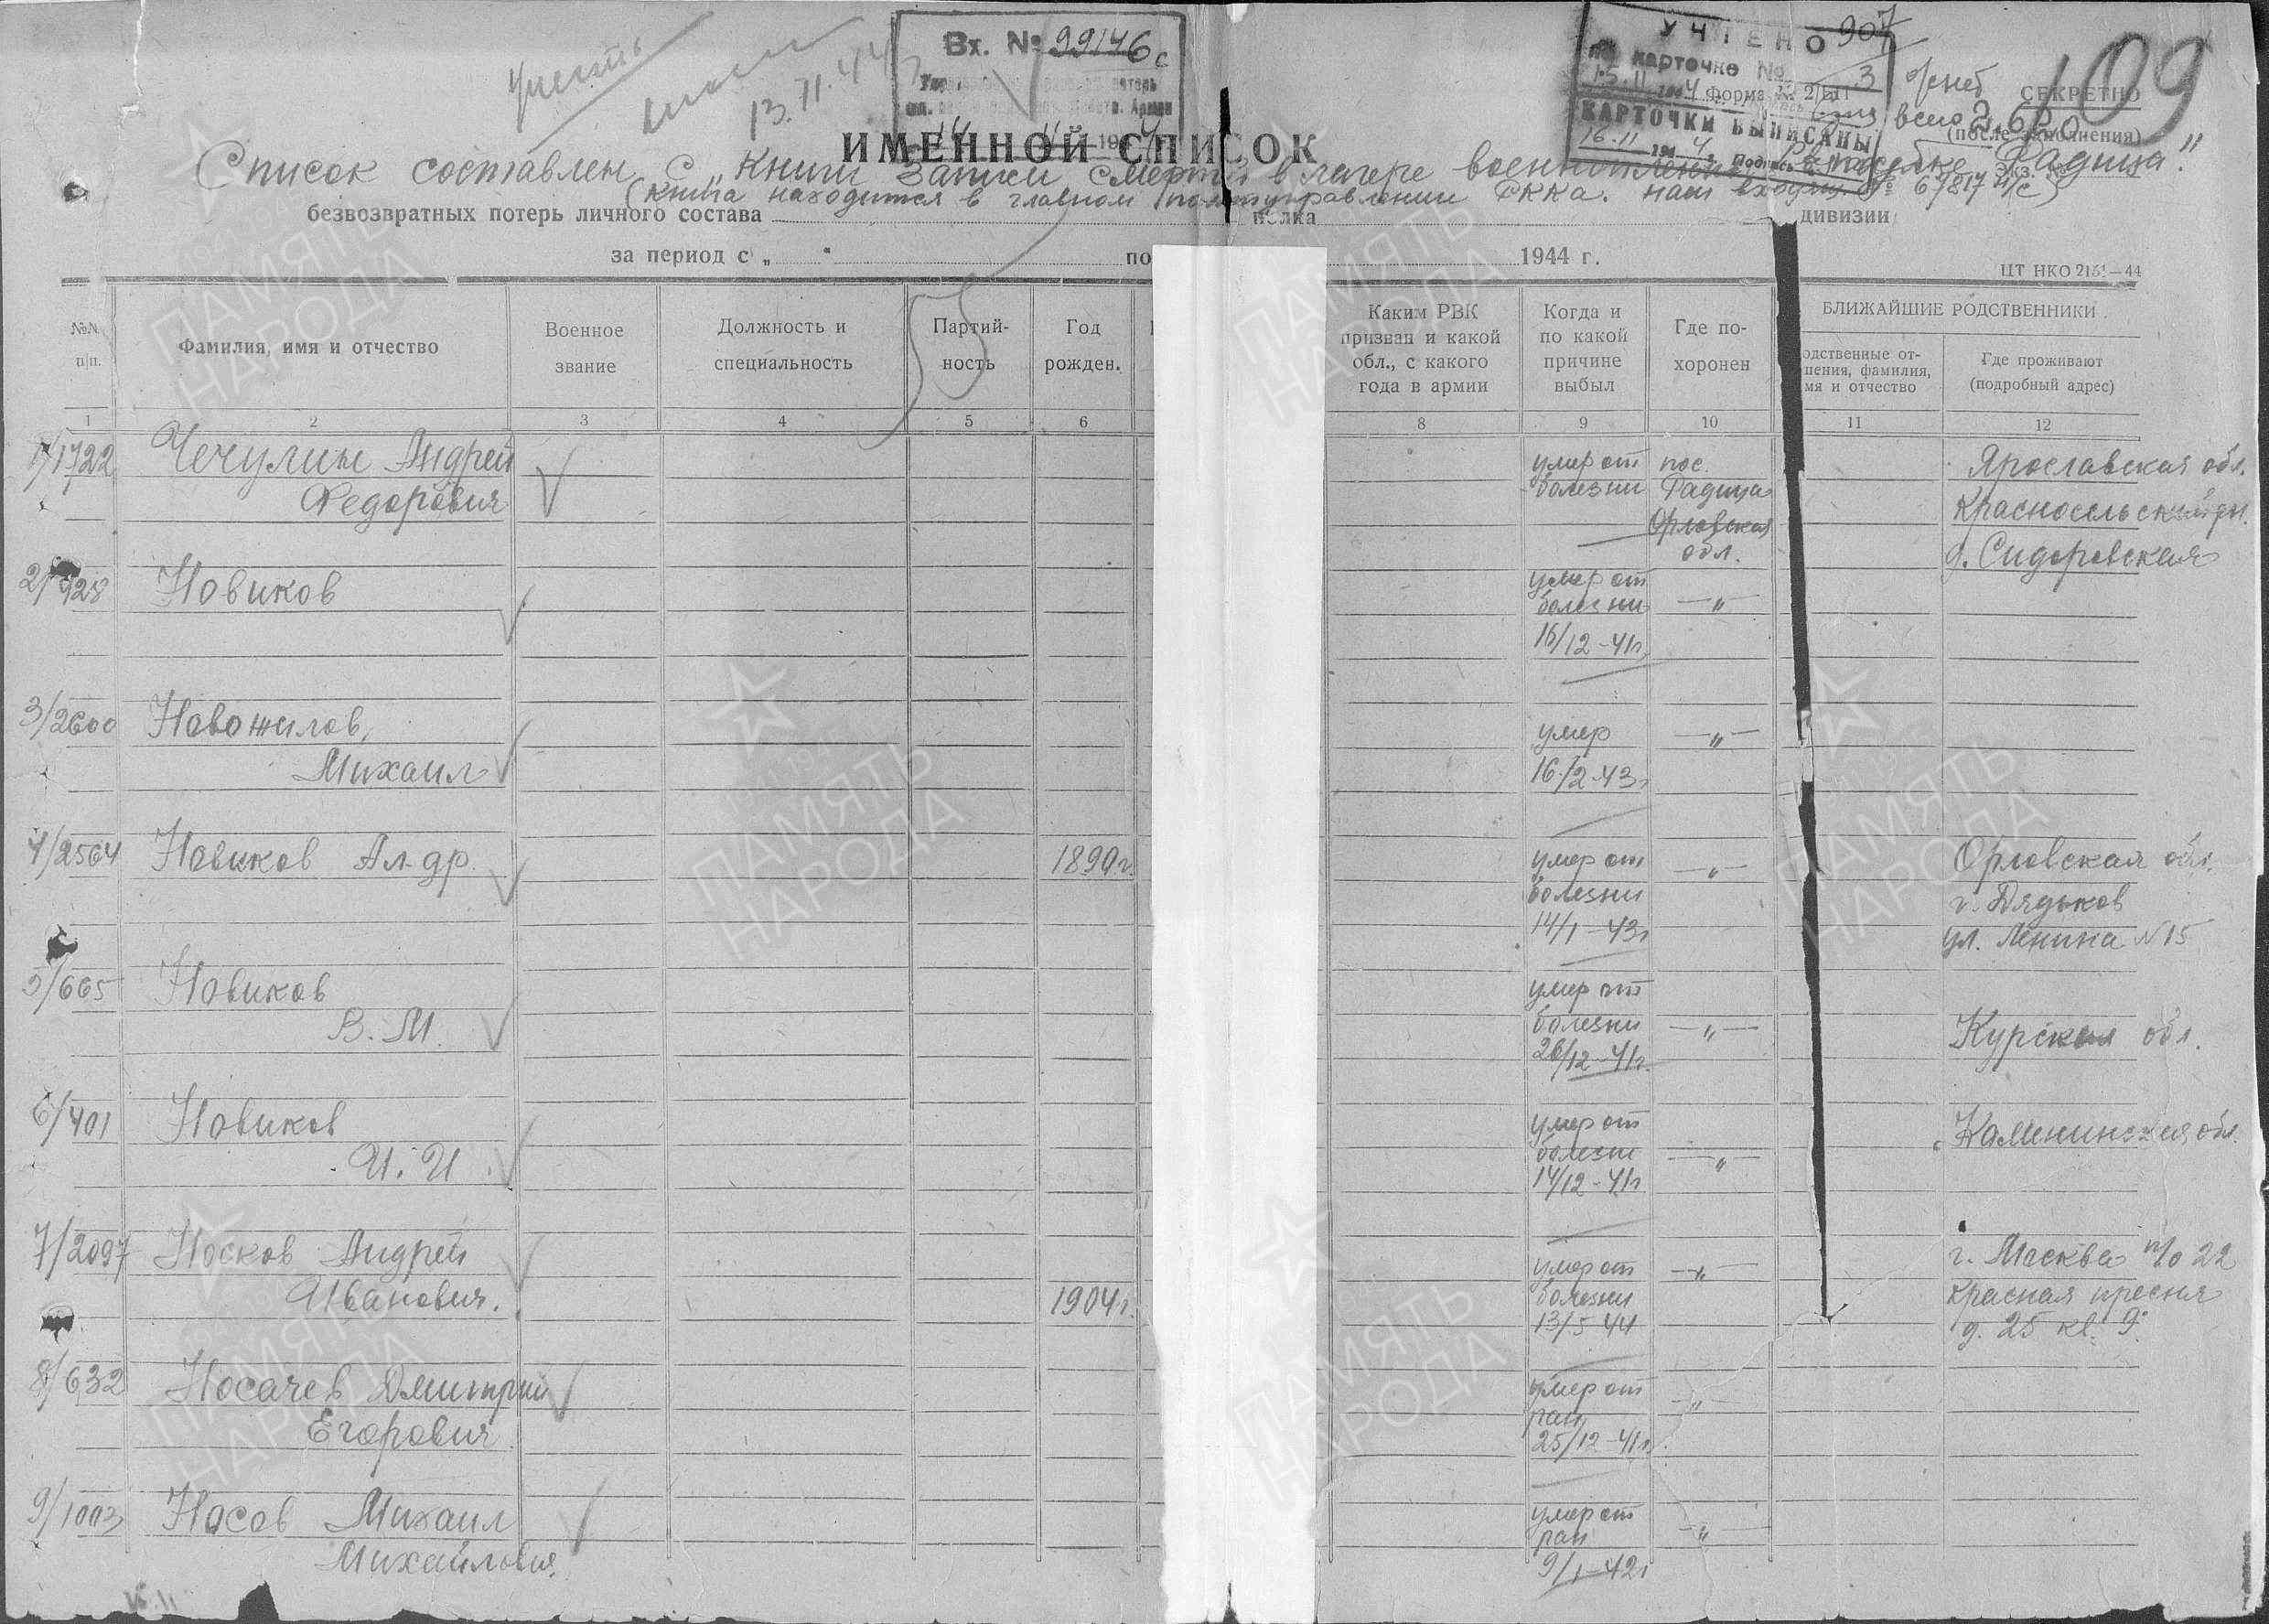 учесть
13.11.44 г
Вх. № 99146с
14 11 1944
УЧТЕНО 907
по карточке №
15.11 1944 г.
Форма № 2/БП
КАРТОЧКИ ВЫПИСАНЫ
16.11 1944 г. Подпись
всего
109
СЕКРЕТНО
(после заполнения)
Экз. №
ИМЕННОЙ СПИСОК
Список составлен с „Книги Записи смерти в лагере военнопленных „Радица".
(книга находится в главном политуправлении РККА. наш входящ. № 67817 и/с)
безвозвратных потерь личного состава полка дивизии
за период с „ “ по 1944 г.
ЦТ НКО 2151—44
№№ п/п.
Фамилия, имя и отчество
Военное звание
Должность и специальность
Партий-ность
Год рожден.
Каким РВК призван и какой обл., с какого года в армии
Когда и по какой причине выбыл
Где по-хоронен
БЛИЖАЙШИЕ РОДСТВЕННИКИ
одственные от-
шения, фамилия,
мя и отчество
Где проживают
(подробный адрес)
1 2 3 4 5 6 8 9 10 11 12
1/1722 Чечулин Андрей умер от пос. Ярославская обл.
Федорович болезни Радица Красносельский рн.
Орловская
обл. д. Сидоровская
2/928 Новиков умер от
болезни —„—
16/12-41г.
3/2600 Новожилов, умер —„—
Михаил 16/2-43г
4/2564 Новиков Ал-др. 1890г. умер от —„— Орловская обл.
болезни г. Дядьков
14/1-43г ул. Ленина №15
5/665 Новиков умер от
В. М. болезни —„— Курская обл.
26/12-41г.
6/401 Новиков умер от Калининская обл.
И. И. болезни —„—
14/12-41г
7/2097 Носков Андрей умер от —„— г. Москва п/о 22
Иванович. 1904г. болезни красная пресня
13/5 44 д. 25 кв. 9.
8/632 Носачев Дмитрий умер от —„—
Егорович ран
25/12-41г.
9/1003 Носов Михаил умер от —„—
Михайлович. ран
9/1-42г
ПАМЯТЬ
НАРОДА